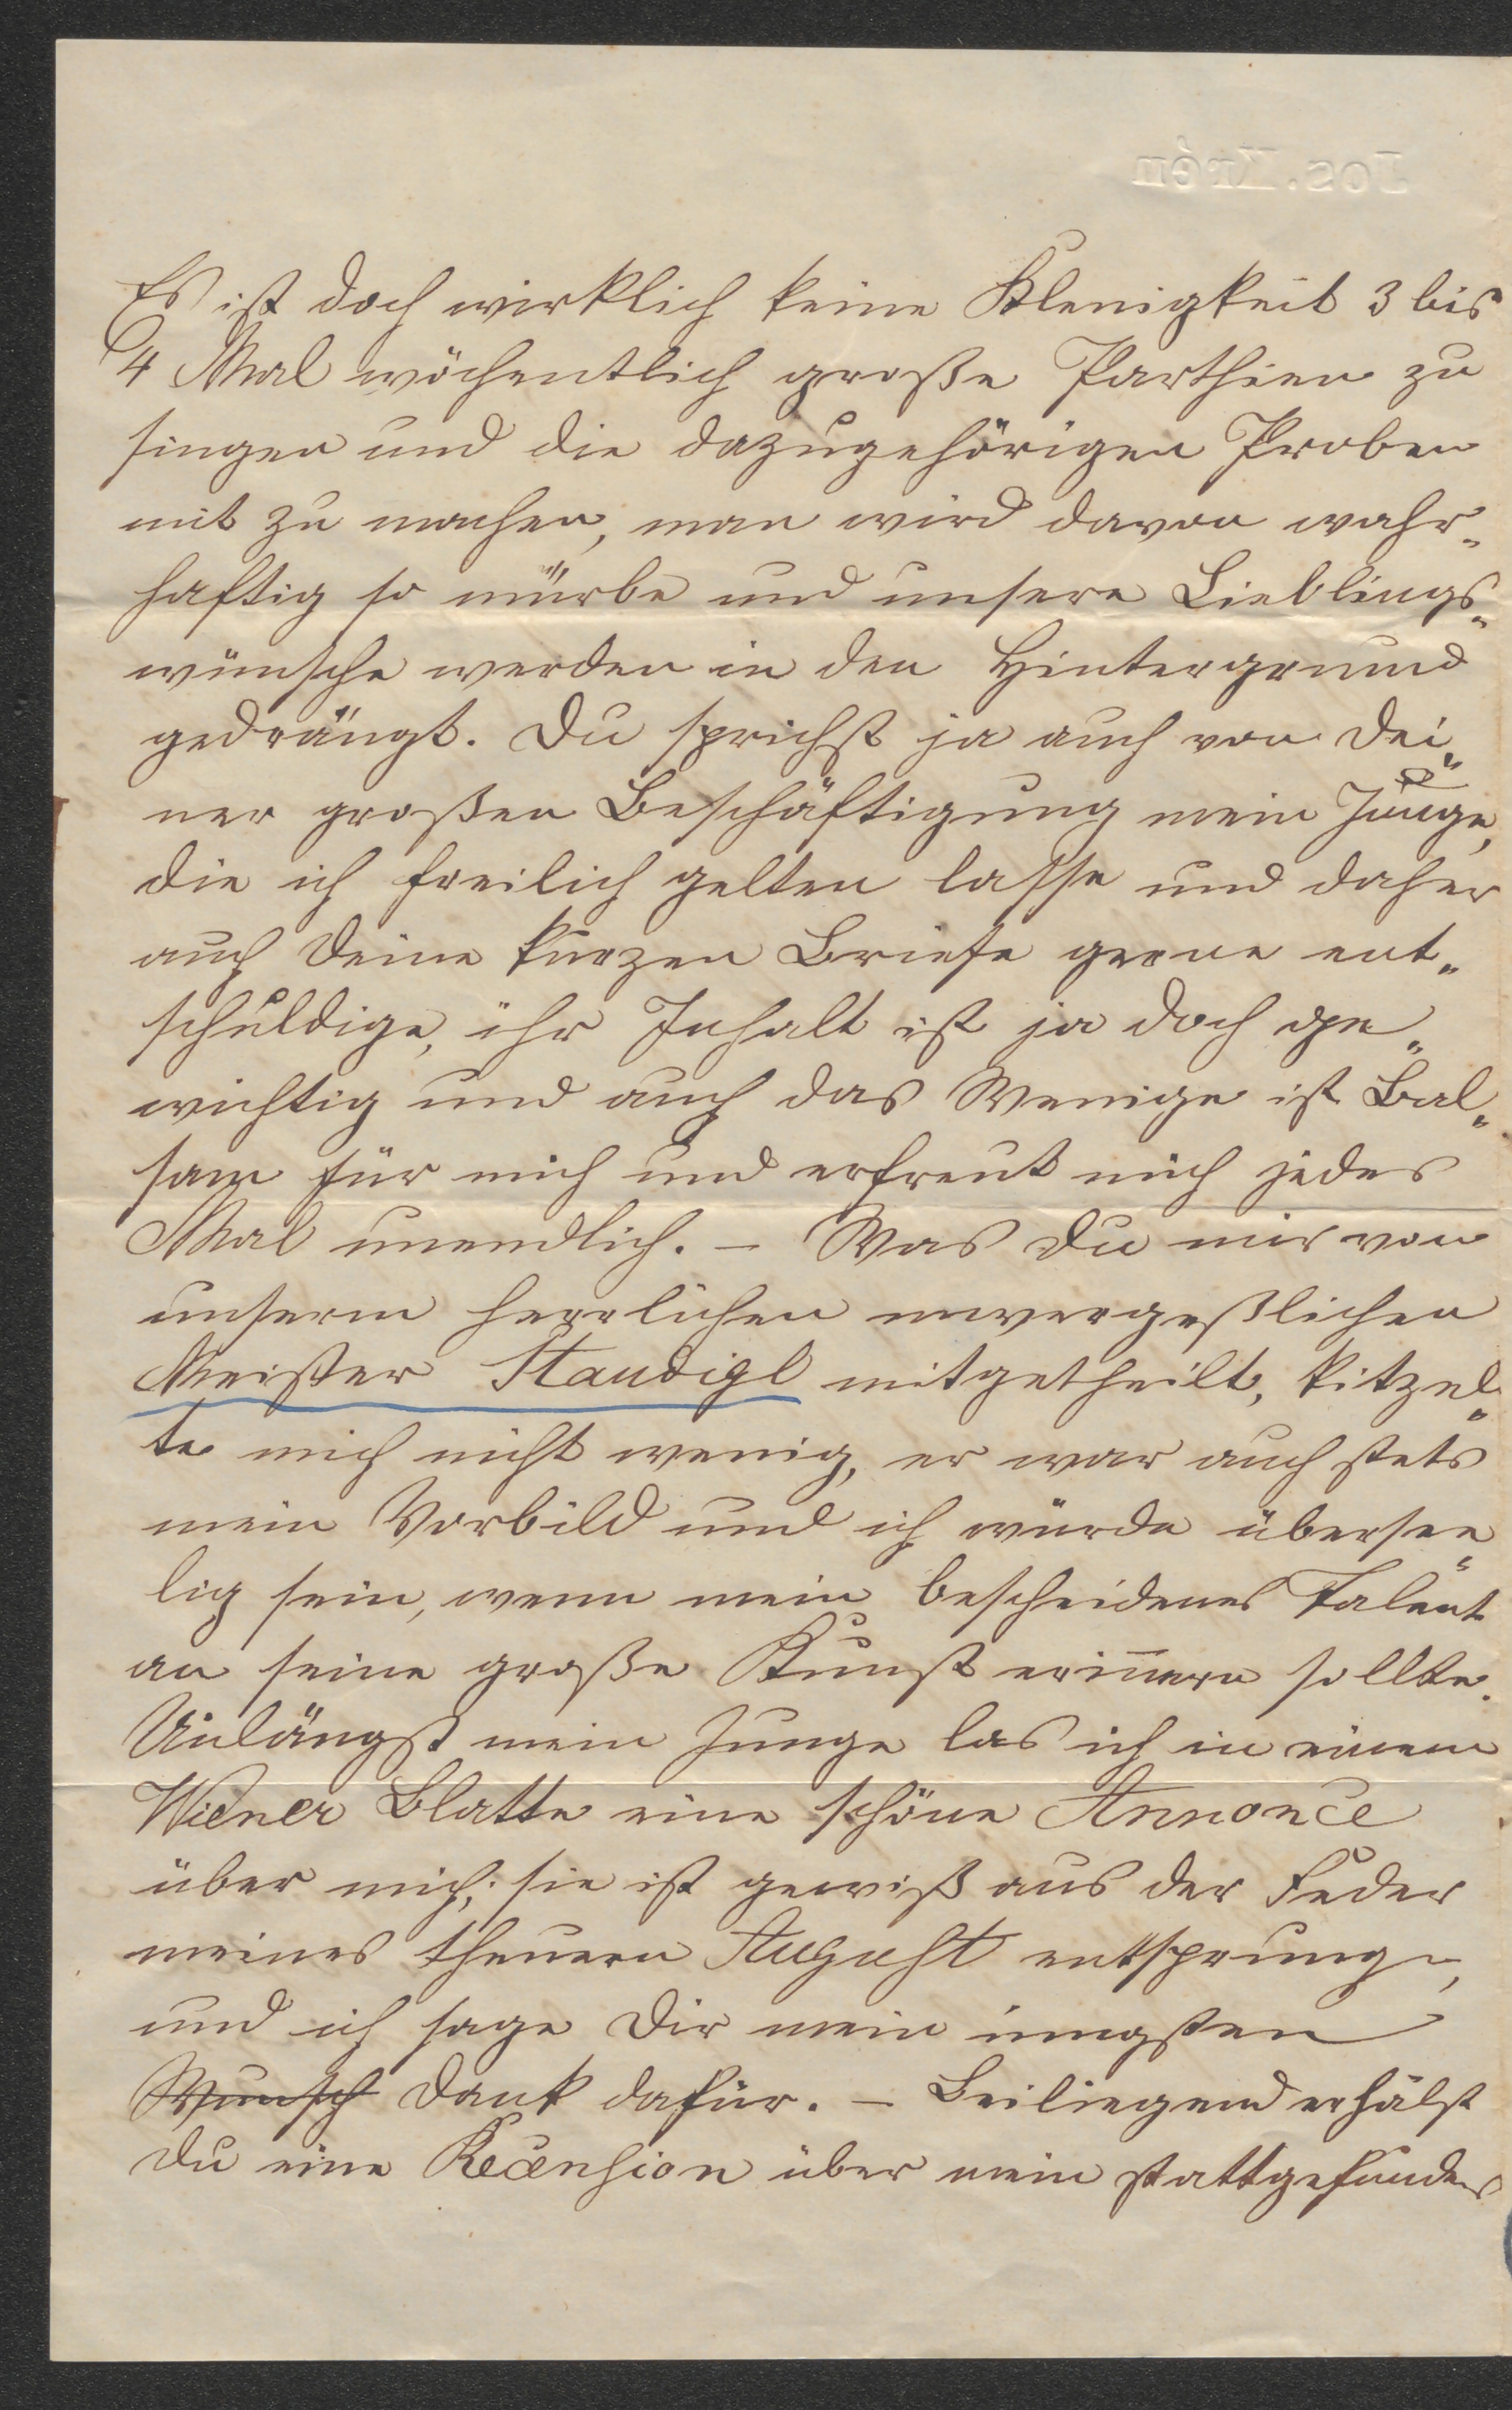 Jos. Krén
Es ist doch wirklich keine Klenigkeit 3 bis
4 Mal wöchentlich große Parthien zu
singen und die dazugehörigen Proben
mit zu machen, man wird davon wahr„
haftig so mürbe und unsere Lieblings„
wünsche werden in den Hintergrund
gedrängt. Du sprichst ja auch von Dei„
ner großen Beschäftigung mein Junge,
die ich freilich gelten lasse und daher
auch Deine kurzen Briefe gerne ent„
schuldige, ihr Inhalt ist ja doch ge„
wichtig und auch das Wenige ist Bal„
sam für mich und erfreut mich jedes
Mal unendlich. – Was Du mir von
unserm herrlichen unvergeßlichen
Meister Staudigl mitgetheilt, kitzel„
te mich nicht wenig, er war auch stets
mein Vorbild und ich würde übersee„
lig sein, wenn mein bescheidenes Talent
an seine große Kunst erin̄ern sollte.
Unlängst mein Junge las ich in einem
Wiener Blatte eine schöne Annonce
über mich; sie ist gewiß aus der Feder
meines theuern August entsprungen,
und ich sage Dir mein innigsten
~~Wunsch~~ Dank dafür. – Beiliegend erhälst
Du eine Recension über mein stattgefundes